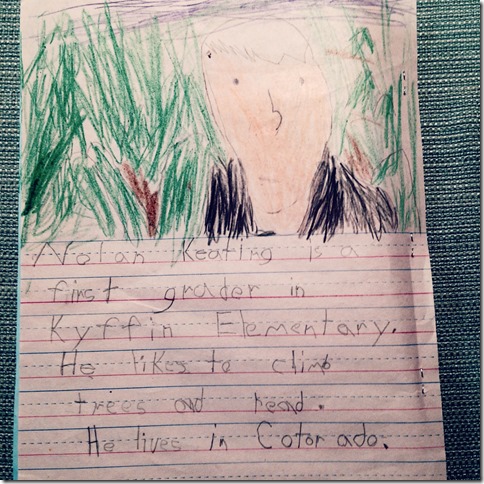 Nolan Keating is a
first grader in
Kyffin Elementary.
He likes to climb
trees and read.
He lives in Colorado.